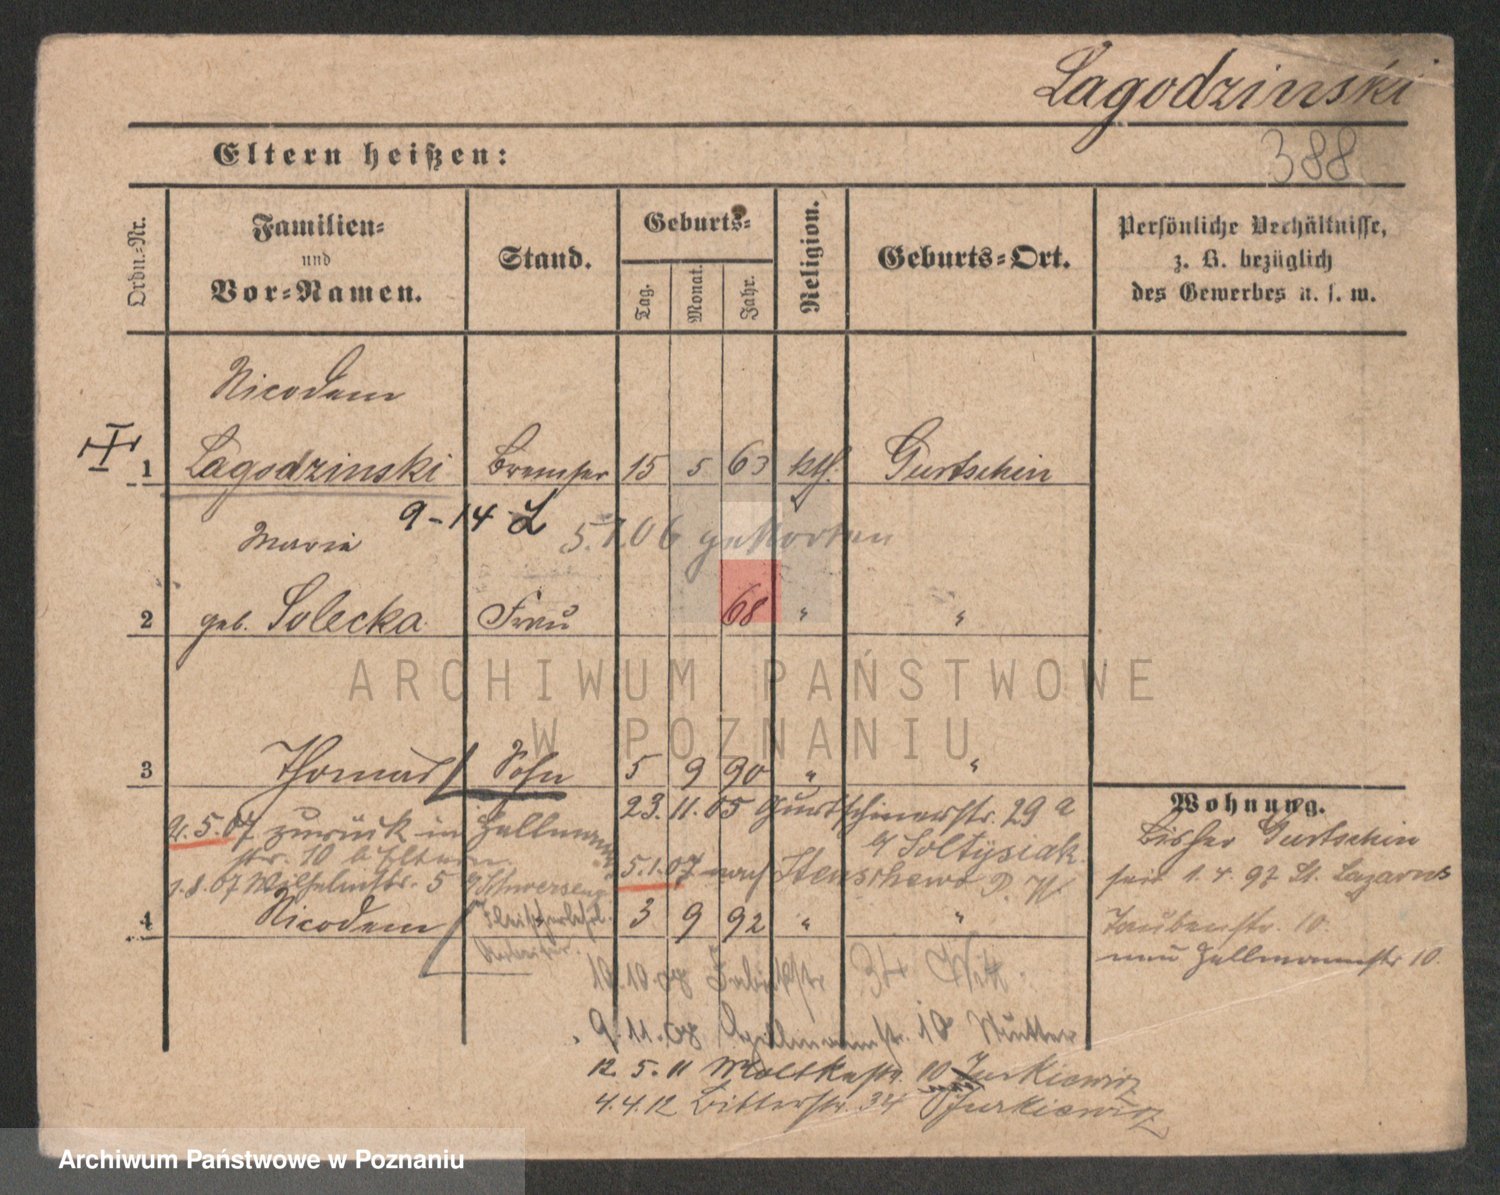 Lagodzinski
388
Eltern heißen:
Ordn.-Nr.
Familien-
und
Vor-Namen.
Stand.
Geburts-
Tag.
Monat.
Jahr.
Religion.
Geburts-Ort.
Persönliche Verhältnisse,
z. B. bezüglich
des Gewerbes u. s. w.
Nicodem
1 Lagodzinski Bremser 15 5 63 kth. Gurtschin
9-14
5.1.06 gestorben
Maria
2 geb. Solecka Frau 68 " "
ARCHIWUM PAŃSTWOWE
W POZNANIU
3 Thomas Sohn 5 9 90 " "
23.11.05 Gurtschinerstr. 29a
b/ Soltysiak
21.5.07 zurück in Hellmann
str. 10 b/ Eltern.
5.1.07 nach
1.8.07 Wilhelmstr. 5
4 Nicodem 3 9 92 " "
Arbeiter
Wohnung.
Bisher Gurtschin
seit 1.4.97 St. Lazarus
Taubenstr. 10.
neu Hellmannstr 10.
10.10.08 34 Witt
9.11.08 Hellmannstr. 10 Mutter
12.5.11 Moltkestr. 10 Jurkiewicz
4.4.12 Bitterstr. 34 Jurkiewicz
Archiwum Państwowe w Poznaniu